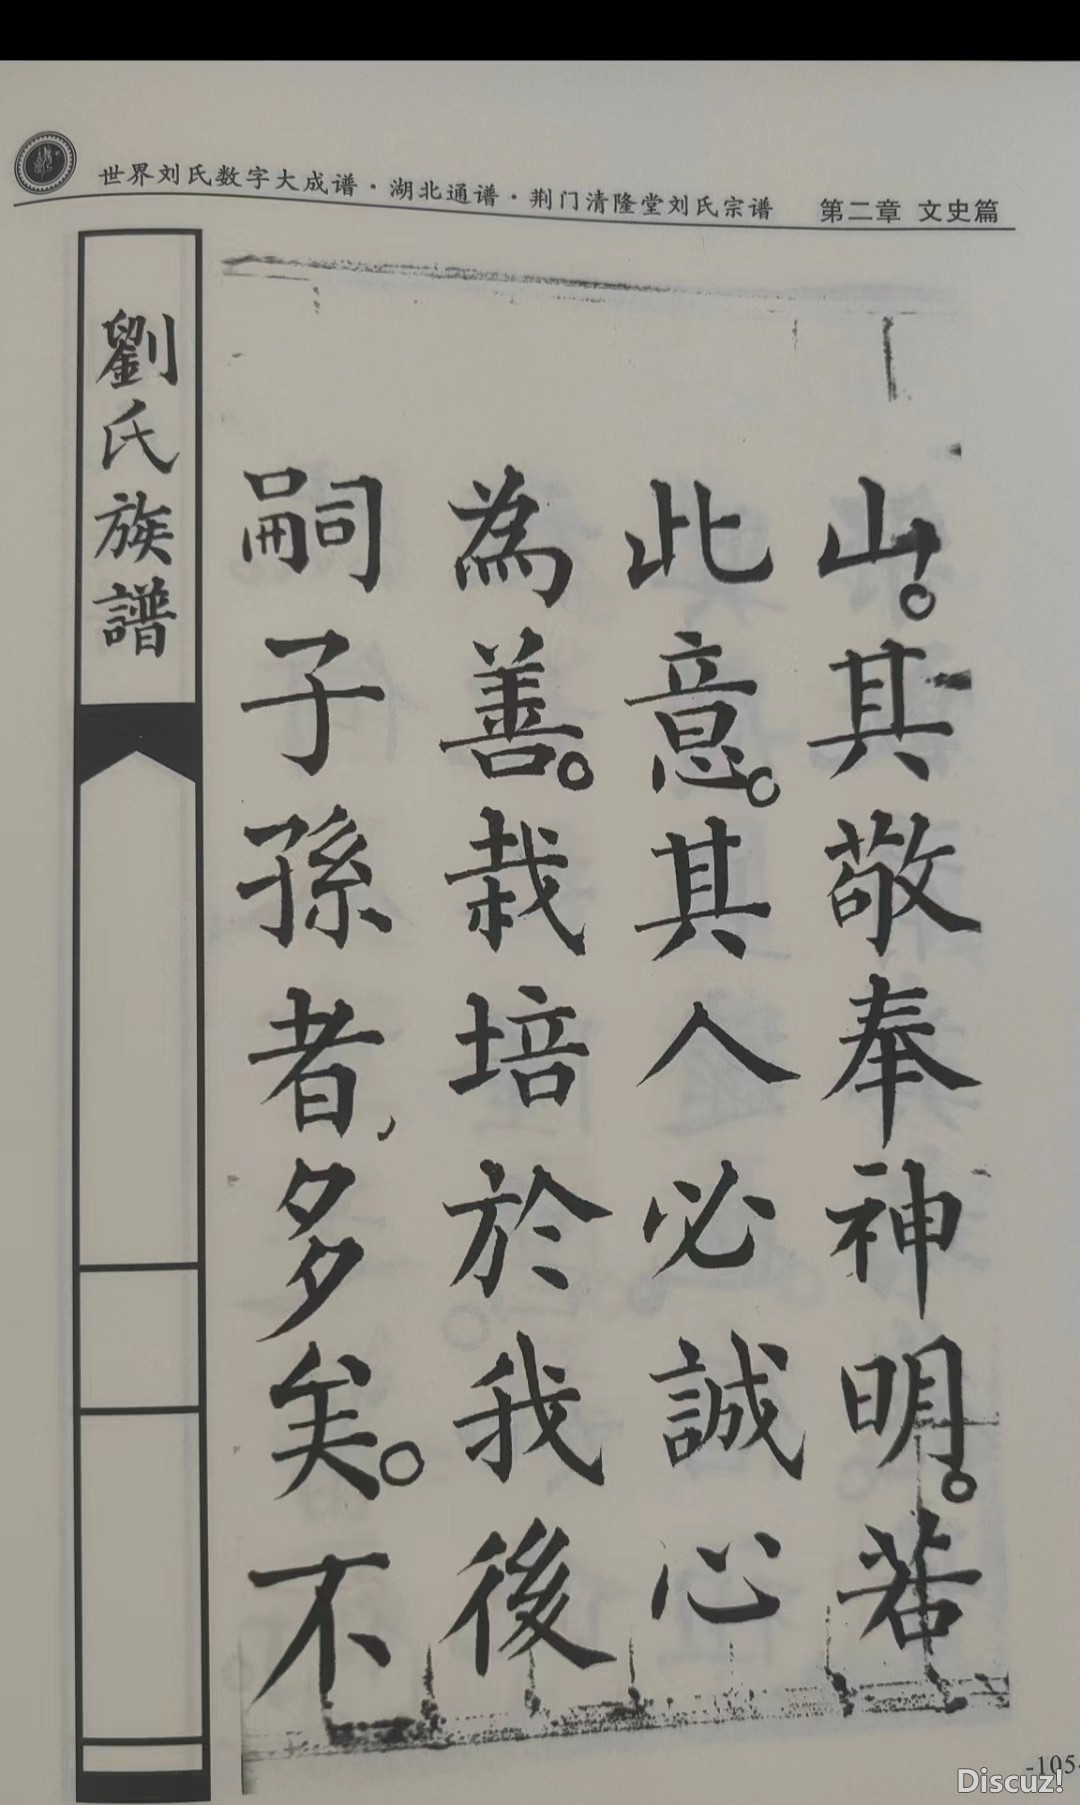 世界刘氏数字大成谱·湖北通谱·荆门清隆堂刘氏宗谱 第二章 文史篇
山。其敬奉神明。若
此意。其人必誠心
為善。栽培於我後
嗣子孫者，多矣。不
劉氏族譜
-105-
Discuz!